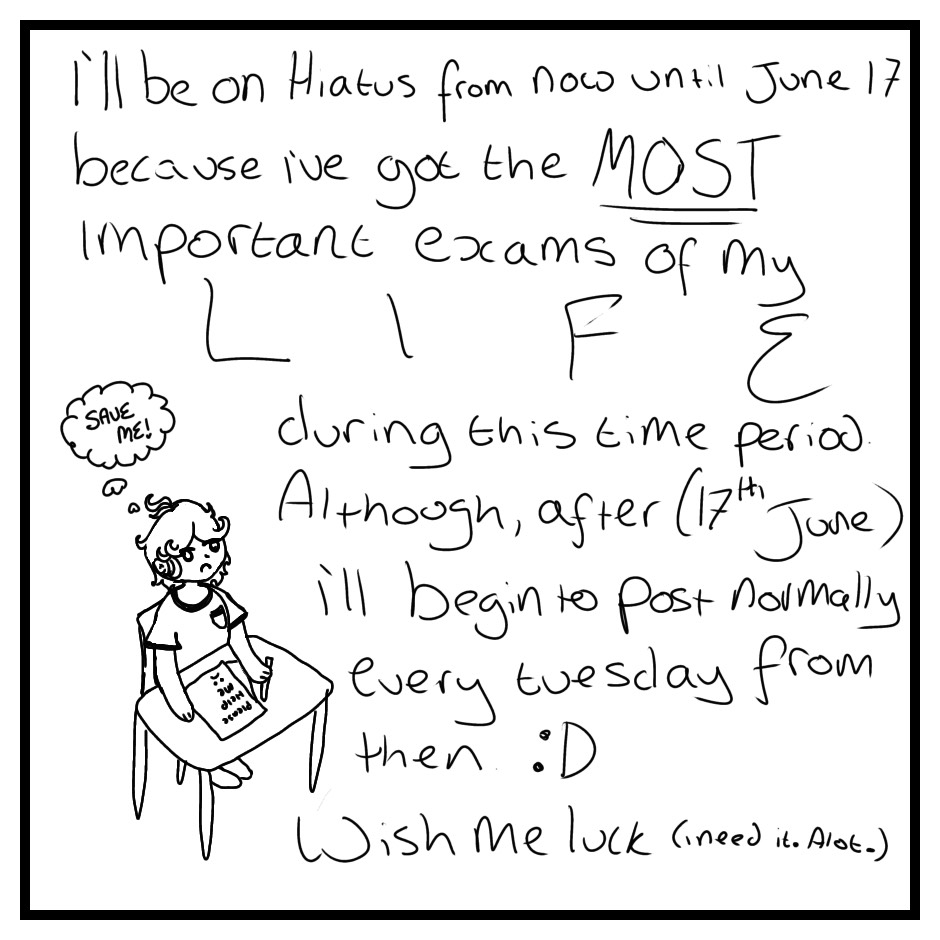 i'll be on Hiatus from now until June 17
because ive got the MOST
important exams of my
L I F E
SAVE
ME!
during this time period.
Although, after (17th June)
i'll begin to post normally
every tuesday from
then. :D
Please
Help
Me
:(
Wish me luck (i need it. Alot.)